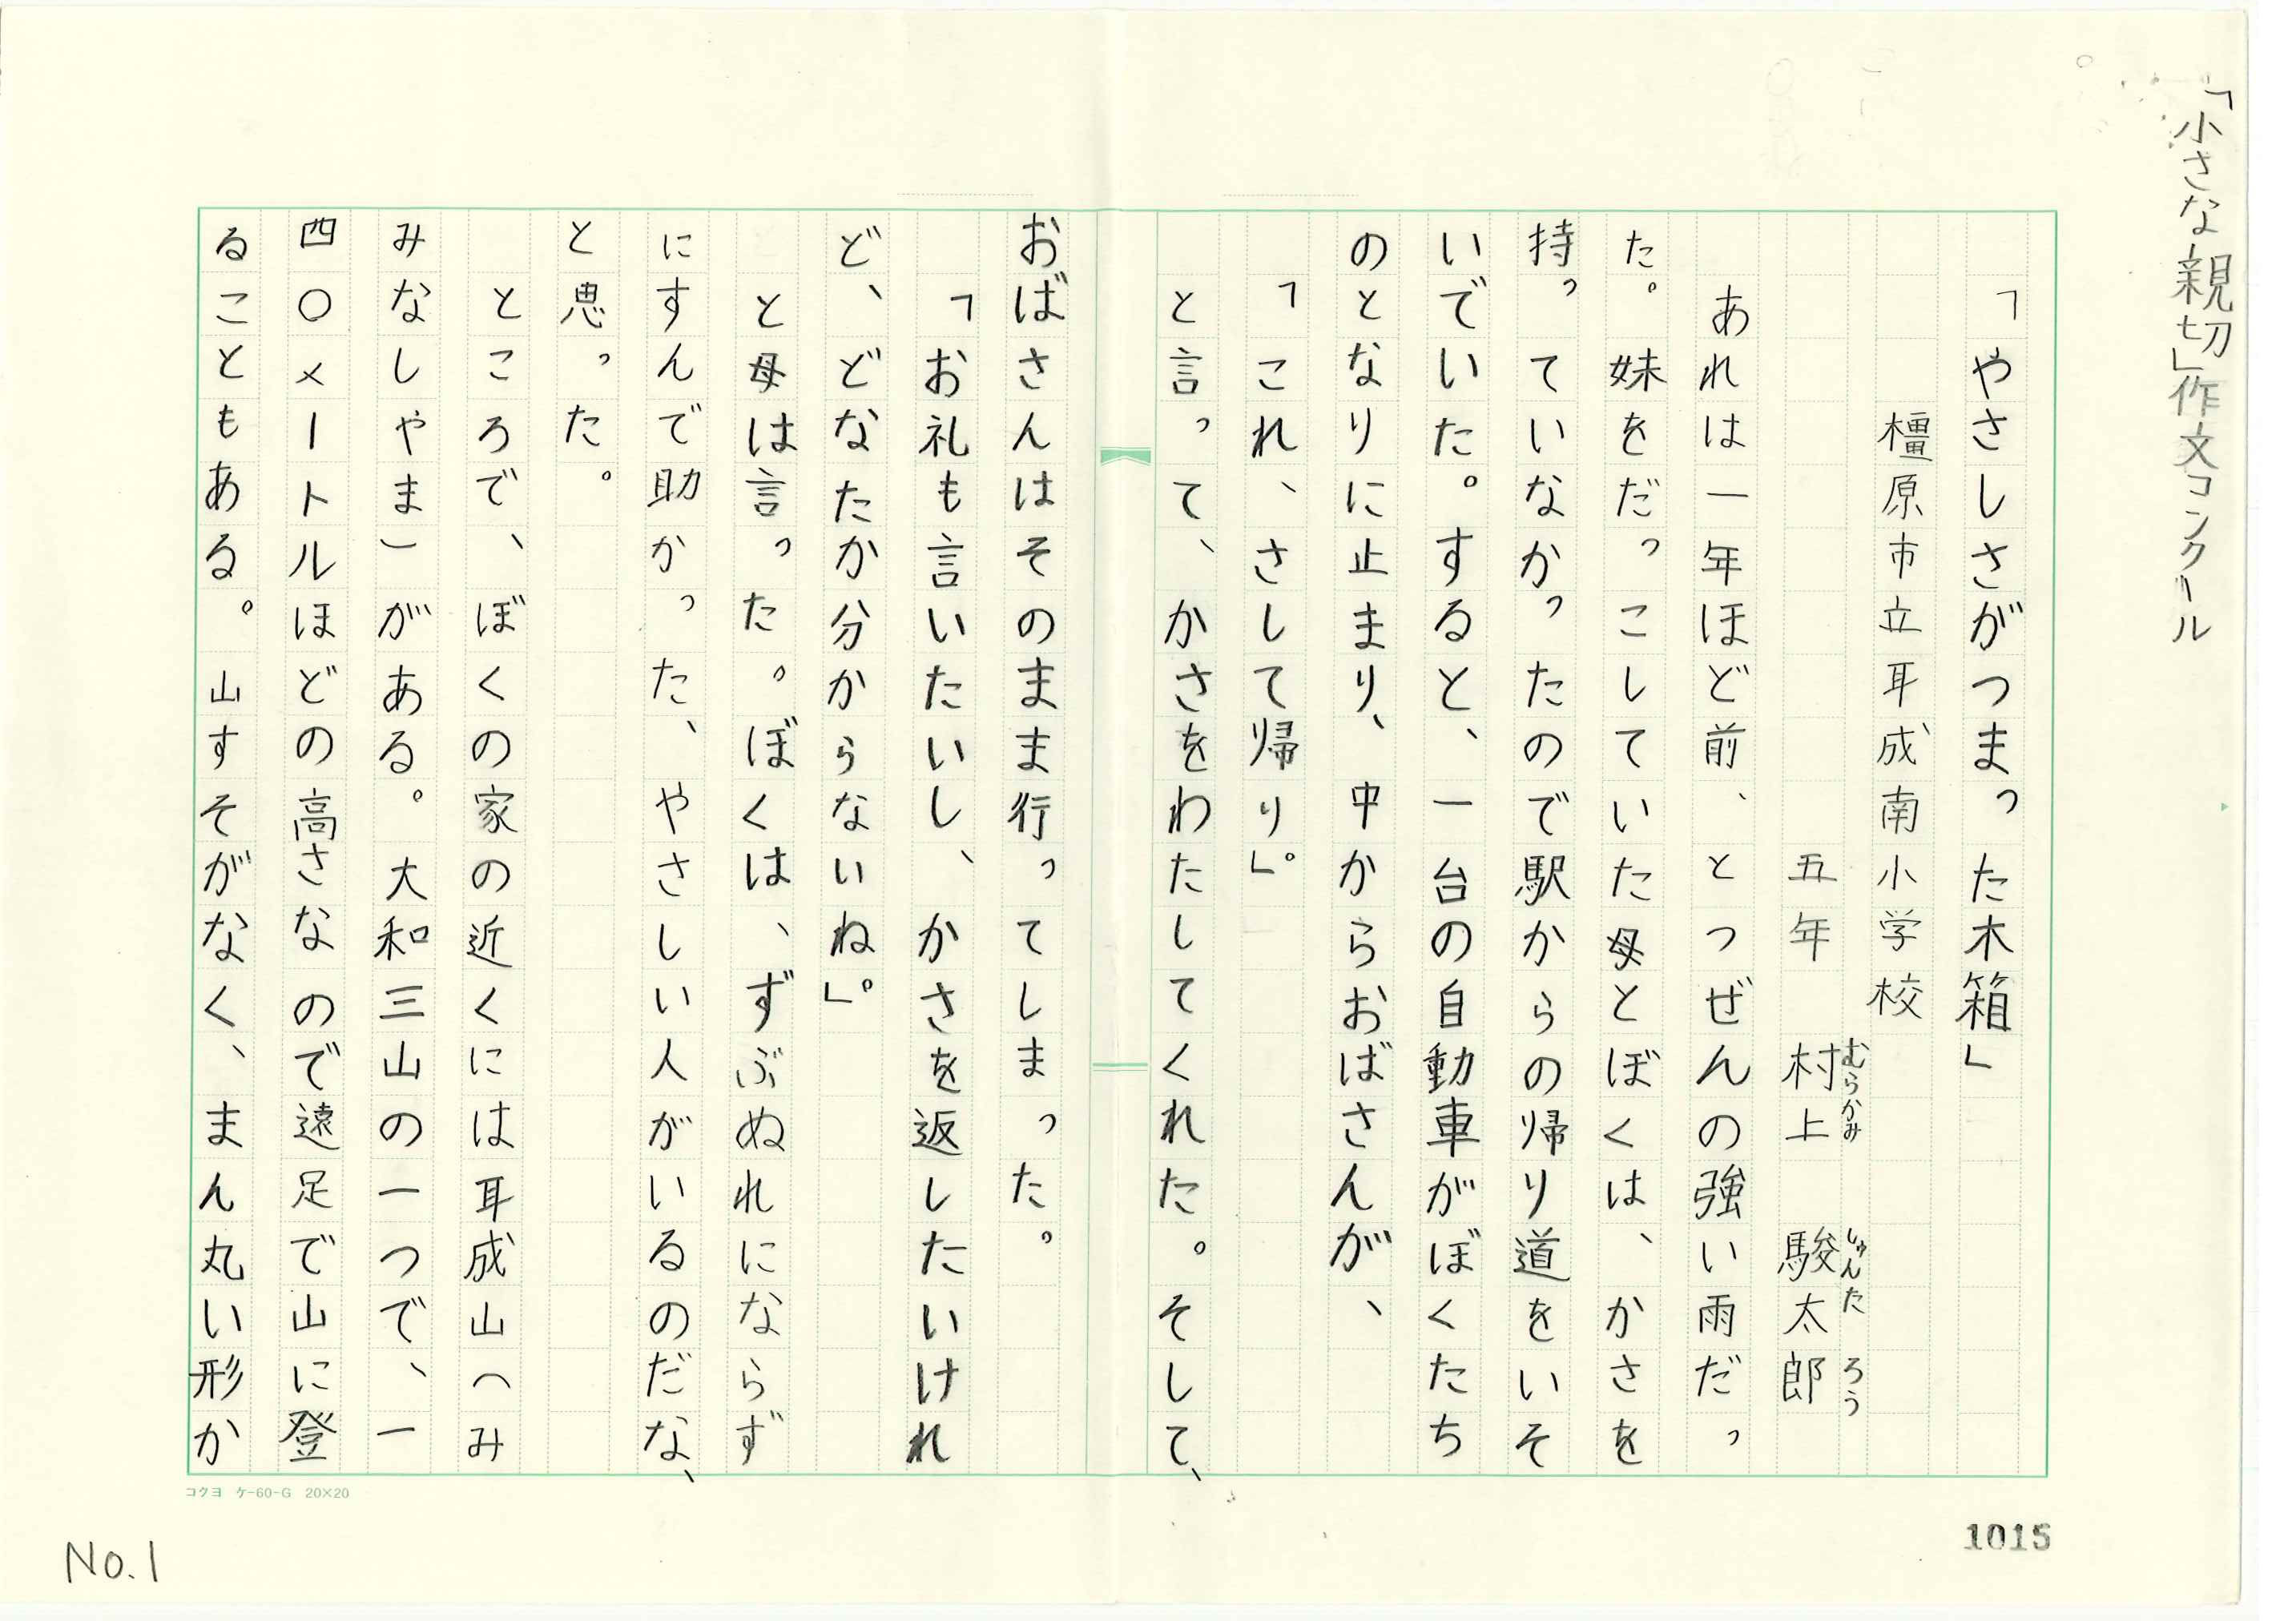 「小さな親切」作文コンクール
「やさしさがつまった木箱」
橿原市立耳成南小学校
五年　村上　駿太郎
むらかみ　しゅんたろう
あれは一年ほど前、とつぜんの強い雨だっ
た。妹をだっこしていた母とぼくは、かさを
持っていなかったので駅からの帰り道をいそ
いでいた。すると、一台の自動車がぼくたち
のとなりに止まり、中からおばさんが、
「これ、さして帰り。」
と言って、かさをわたしてくれた。そして、
おばさんはそのまま行ってしまった。
「お礼も言いたいし、かさを返したいけれ
ど、どなたか分からないね。」
と母は言った。ぼくは、ずぶぬれにならず
にすんで助かった、やさしい人がいるのだな、
と思った。
ところで、ぼくの家の近くには耳成山（み
みなしやま）がある。大和三山の一つで、一
四〇メートルほどの高さなので遠足で山に登
ることもある。山すそがなく、まん丸い形か
コクヨ　ケ-60-G　20×20
No.1
1015